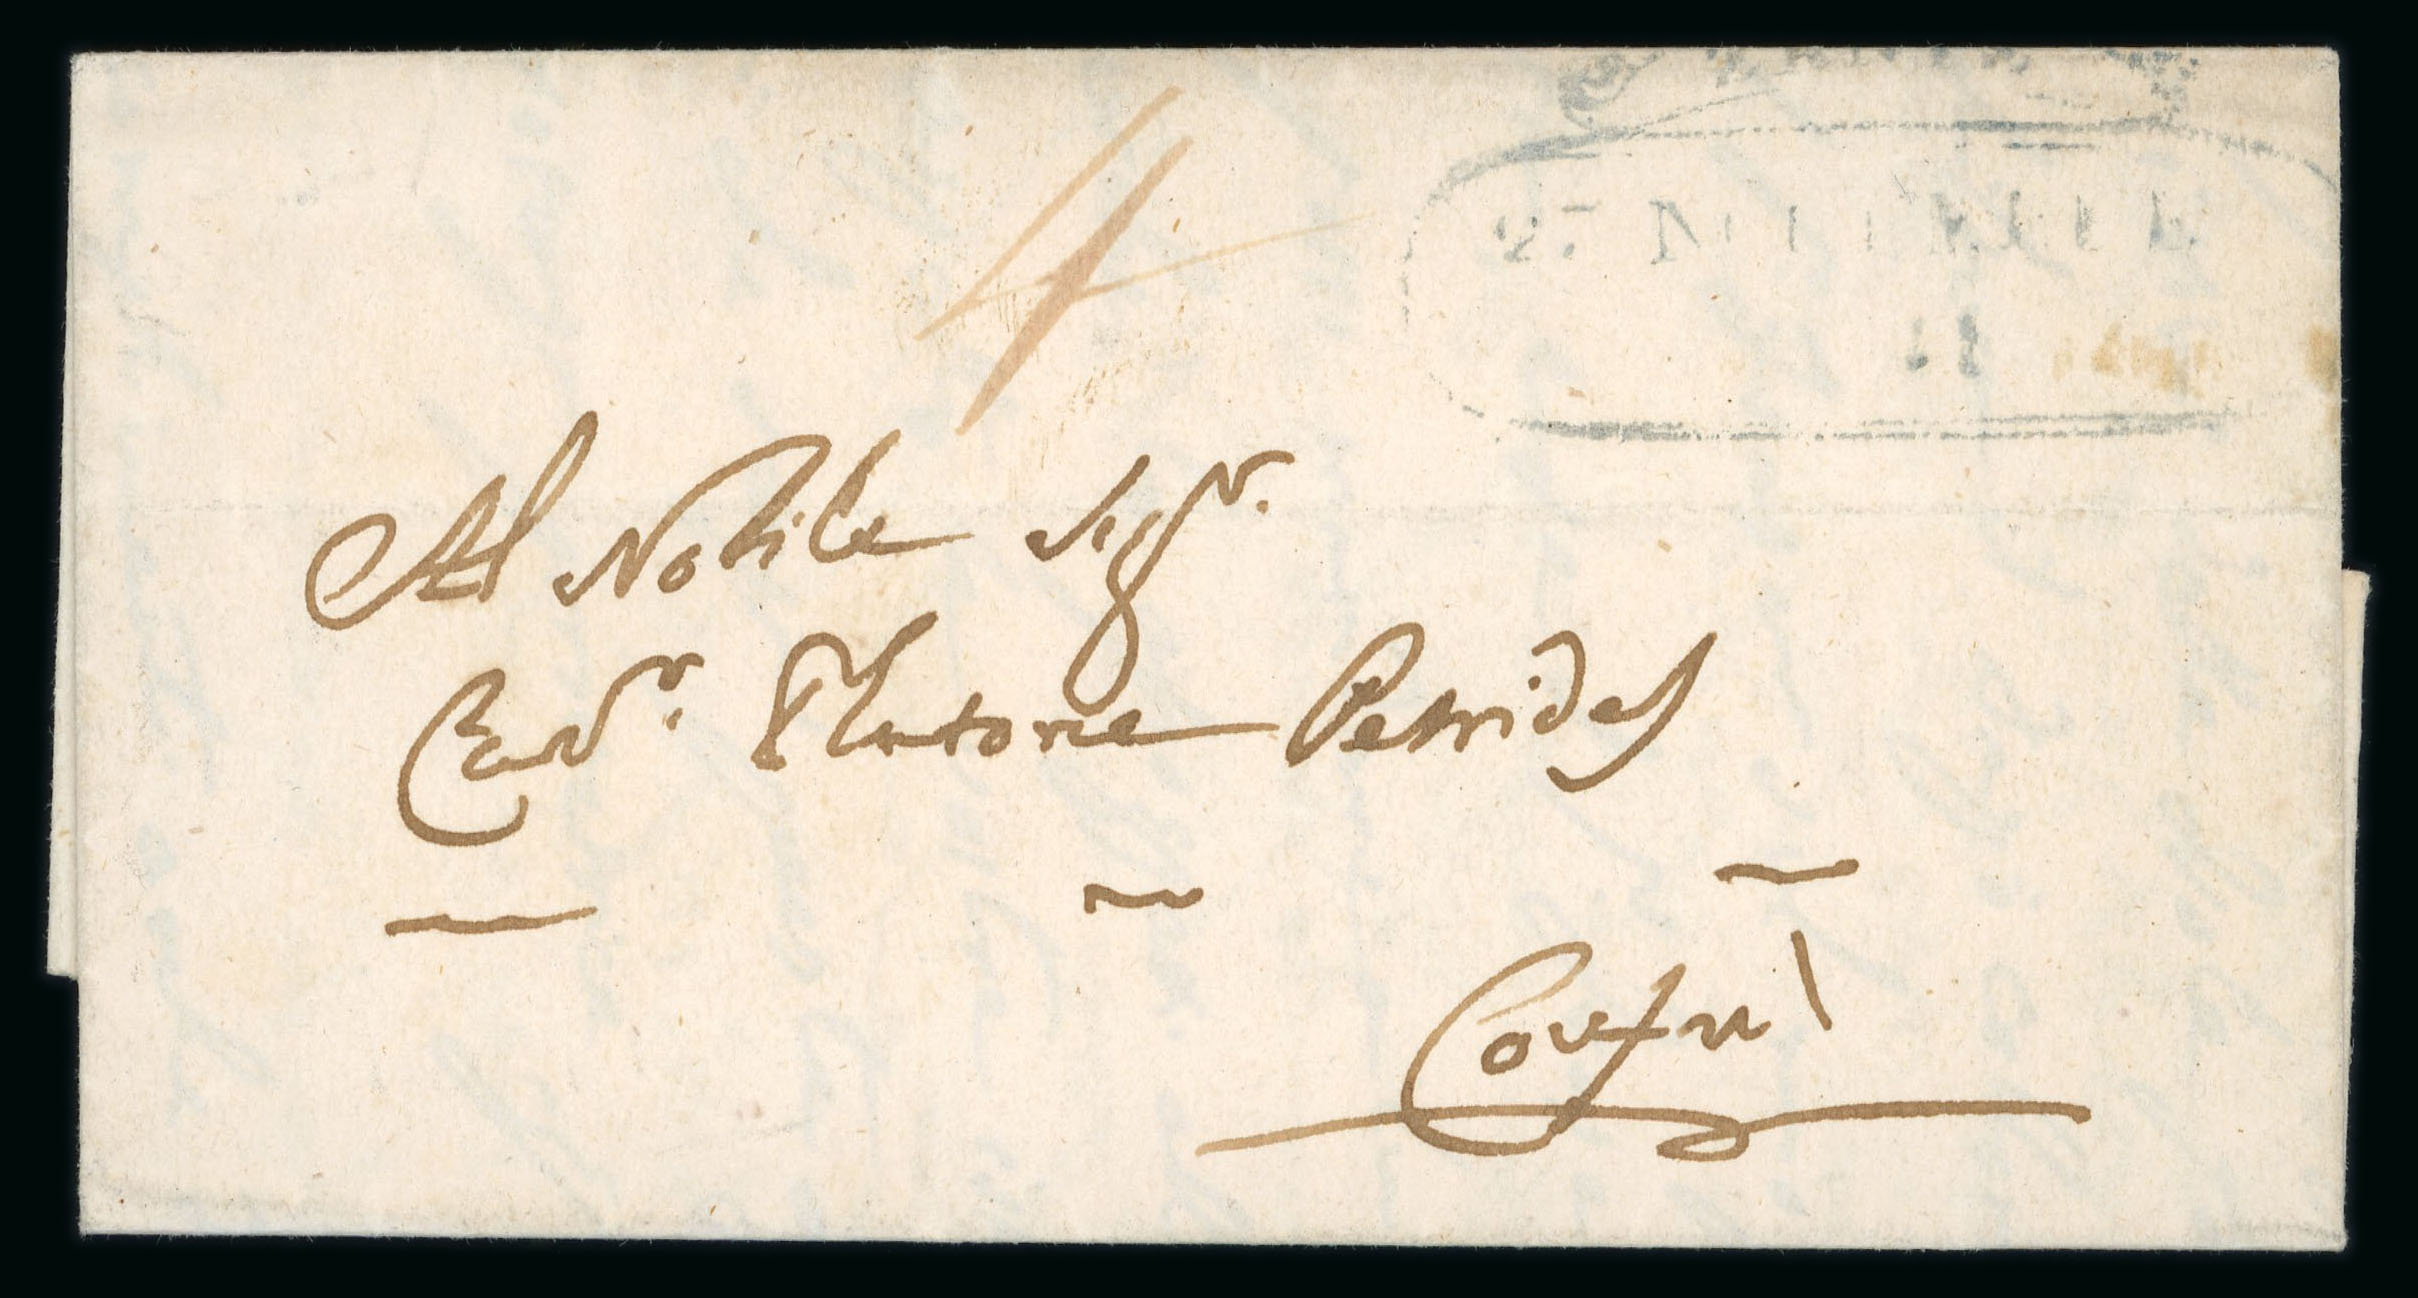 4
Al Nobile Sigr.
Cavr. Platone Petrides
Corfù